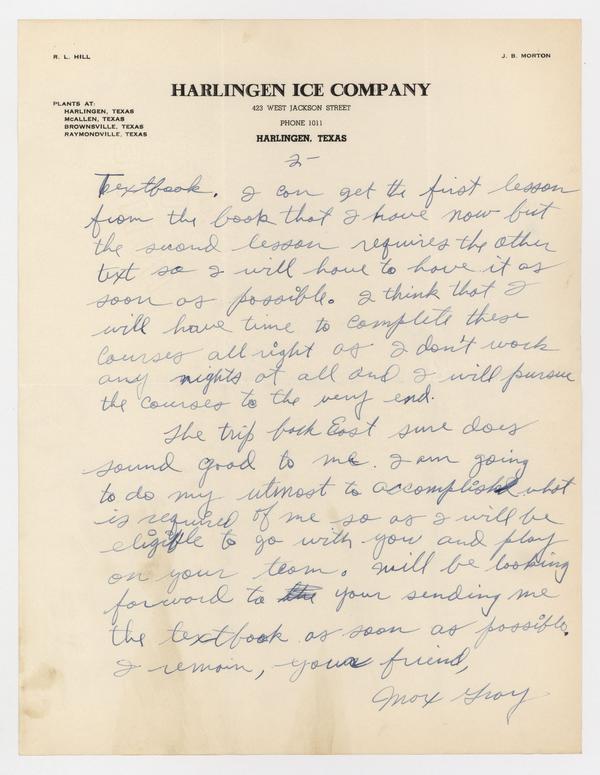 R. L. HILL
J. B. MORTON
HARLINGEN ICE COMPANY
423 WEST JACKSON STREET
PHONE 1011
HARLINGEN, TEXAS
PLANTS AT:
HARLINGEN, TEXAS
McALLEN, TEXAS
BROWNSVILLE, TEXAS
RAYMONDVILLE, TEXAS
2-
Textbook. I can get the first lesson
from the book that I have now but
the second lesson requires the other
text so I will have to have it as
soon as possible. I think that I
will have time to complete these
courses all right as I don't work
any nights at all and I will pursue
the courses to the very end.
The trip back East sure does
sound good to me. I am going
to do my utmost to accomplish what
is required of me so as I will be
eligible to go with you and play
on your team. Will be looking
forward to the your sending me
the textbook as soon as possible.
I remain, your friend,
Max Gray